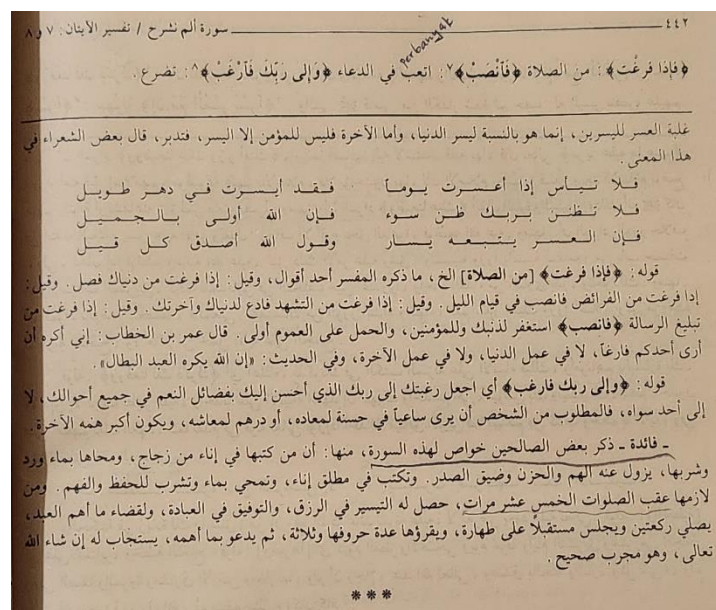 ٤٤٢ سورة ألم نشرح / تفسير الآيتان: ٧ و ٨
Perbanyak
﴿فإذا فرغت﴾: من الصلاة ﴿فَٱنْصَبْ﴾ ٧: اتعب في الدعاء ﴿وَإِلى رَبِّكَ فَٱرْغَبْ﴾ ٨: تضرع.
غلبة العسر لليسرين، إنما هو بالنسبة ليسر الدنيا، وأما الآخرة فليس للمؤمن إلا اليسر، فتدبر، قال بعض الشعراء في
هذا المعنى.
فلا تيأس إذا أعسرت يوماً فقد أيسرت في دهر طويل
فلا تظنن بربك ظن سوء فإن الله أولى بالجميل
فإن العسر يتبعه يسار وقول الله أصدق كل قيل
قوله: ﴿فإذا فرغت﴾ [من الصلاة] الخ، ما ذكره المفسر أحد أقوال، وقيل: إذا فرغت من دنياك فصل. وقيل:
إذا فرغت من الفرائض فانصب في قيام الليل. وقيل: إذا فرغت من التشهد فادع لدنياك وآخرتك. وقيل: إذا فرغت من
تبليغ الرسالة ﴿فانصب﴾ استغفر لذنبك وللمؤمنين، والحمل على العموم أولى. قال عمر بن الخطاب: إني أكره أن
أرى أحدكم فارغاً، لا في عمل الدنيا، ولا في عمل الآخرة، وفي الحديث: «إن الله يكره العبد البطال».
قوله: ﴿وإلى ربك فارغب﴾ أي اجعل رغبتك إلى ربك الذي أحسن إليك بفضائل النعم في جميع أحوالك، لا
إلى أحد سواه، فالمطلوب من الشخص أن يرى ساعياً في حسنة لمعاده، أو درهم لمعاشه، ويكون أكبر همه الآخرة.
ـ فائدة ـ ذكر بعض الصالحين خواص لهذه السورة، منها: أن من كتبها في إناء من زجاج، ومحاها بماء ورد
وشربها، يزول عنه الهم والحزن وضيق الصدر. وتكتب في مطلق إناء، وتمحي بماء وتشرب للحفظ والفهم. ومن
لازمها عقب الصلوات الخمس عشر مرات، حصل له التيسير في الرزق، والتوفيق في العبادة، ولقضاء ما أهم العبد،
يصلي ركعتين ويجلس مستقبلاً على طهارة، ويقرؤها عدة حروفها وثلاثة، ثم يدعو بما أهمه، يستجاب له إن شاء الله
تعالى، وهو مجرب صحيح.
***